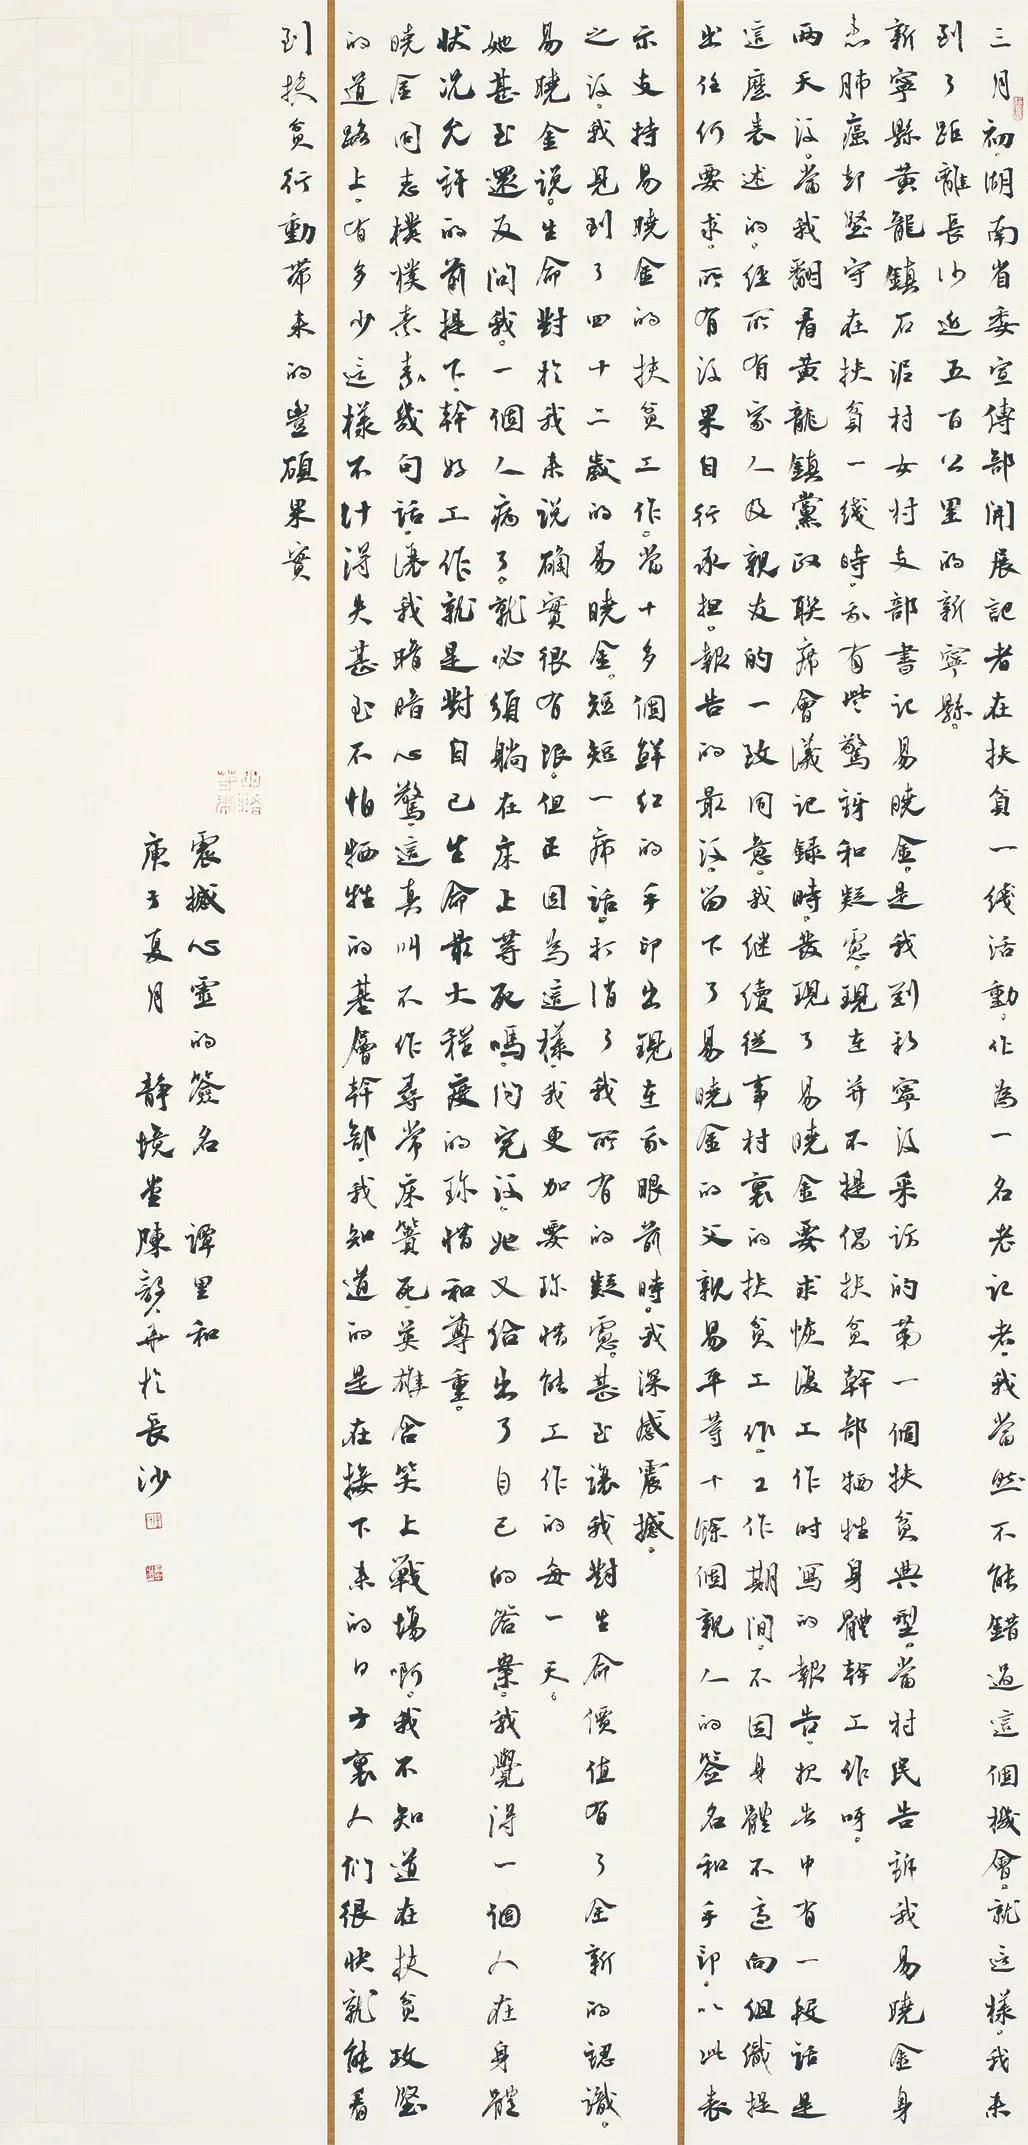 三月初湖南省委宣傳部開展記者在扶貧一綫活動。作為一名老記者，我當然不能錯過這個機會。就這樣，我來
到了距離長沙近五百公里的新寧縣。
新寧縣黃龍鎮石泥村女村支部書記易曉金，是我到新寧後采訪的第一個扶貧典型。當村民告訴我易曉金身
患肺癌卻堅守在扶貧一綫時，我有些驚訝和疑慮，現在并不提倡扶貧幹部犧牲身體幹工作呀。
兩天後，當我翻看黃龍鎮黨政聯席會議記録時，發現了易曉金要求恢復工作時寫的報告，報告中有一段話是
這麼表述的。經所有家人及親友的一致同意，我繼續從事村裏的扶貧工作。工作期間，不因身體不適向組織提
出任何要求。所有後果自行承担。報告的最後，留下了易曉金的父親易平等十餘個親人的簽名和手印，以此表
示支持易曉金的扶貧工作。當十多個鮮紅的手印出現在我眼前時，我深感震撼。
之後，我見到了四十二歲的易曉金。短短一席話，打消了我所有的疑慮。甚至讓我對生命價值有了全新的認識。
易曉金説。生命對於我來説确實很有限。但正因為這樣，我更加要珍惜能工作的每一天。
她甚至還反問我。一個人病了。就必須躺在床上等死嗎。問完後，她又給出了自己的答案。我覺得一個人在身體
狀况允許的前提下，幹好工作就是對自己生命最大程度的珍惜和尊重。
曉金同志樸樸素素幾句話，讓我暗暗心驚，這真叫不作尋常床簀死，英雄含笑上戰場啊。我不知道在扶貧攻堅
的道路上，有多少這樣不計得失甚至不怕犧牲的基層幹部，我知道的是在接下來的日子裏人們很快就能看
到扶貧行動帶來的豐碩果實
震撼心靈的簽名 譚里和
庚子夏月 静境堂陳 書於長沙